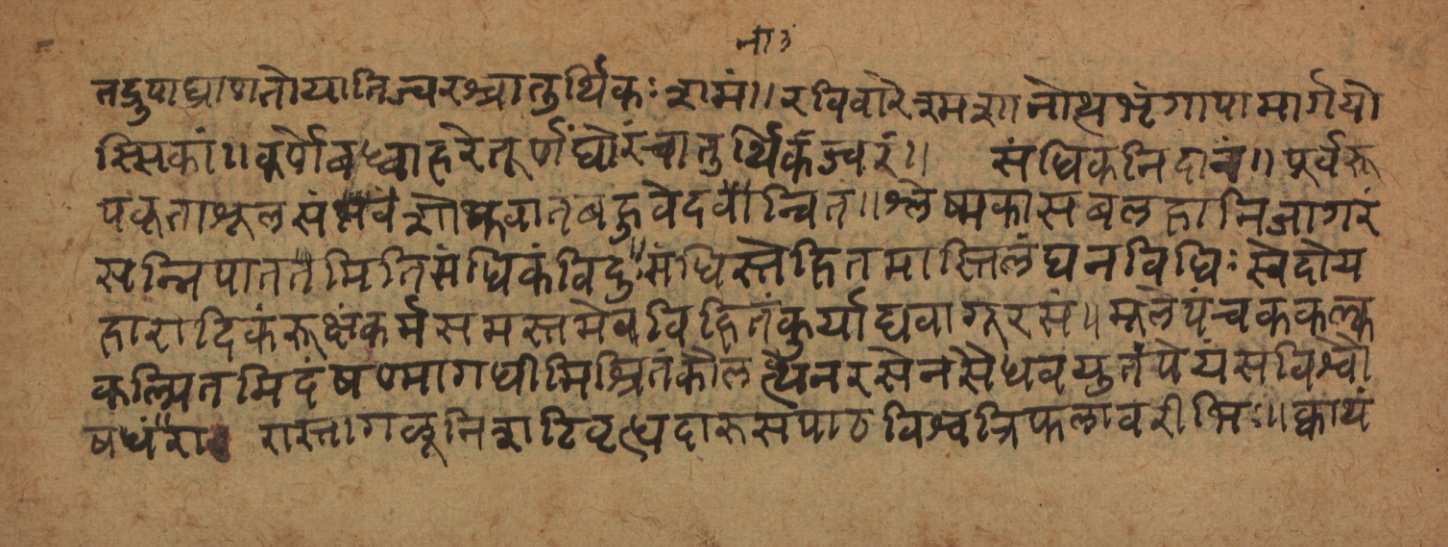 तद्रुपाघ्राणतोयातिज्वरश्चातुर्थिकः शमं ॥ रविवारे श्मशानोत्थभृंगापामार्गयो
स्सिकां ॥ कर्णे बध्वाहरेतूर्णं घोरं चातुर्थिकं ज्वरं ॥ संधिकनिदानं ॥ पूर्वरू
पकृताशूलसंभवं शोफवातबहुवेदनान्वितं ॥ श्लेष्मकासबलहानिजागरं
सन्निपाततमितिसंधिकं विदुः ॥ संधिस्तेहितमास्तिलंघनविधिः स्वेदोय
हारादिकं रूक्षं कर्म समस्तमेवविहितं कुर्याद्यवागूरसं ॥ मूलेपंचककल्क
कल्पितमिदंषण्मागधीमिश्रितकौलत्थेनरसेनसैधवयुतंपेयंसविश्वौ
षधं ॥ रास्नागळूनिशटिवृत्धदारुसपाठविश्वत्रिफलावरीभिः ॥ क्वाथं